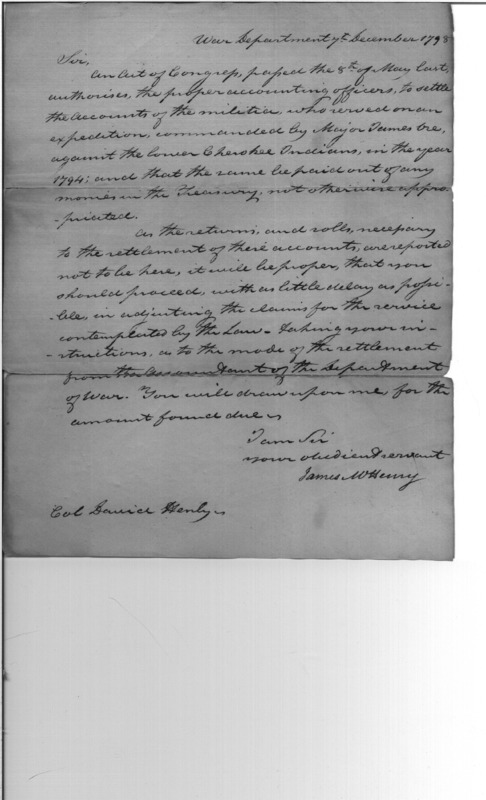 War Department 7th December 1798
Sir,
An Act of Congress, passed the 8th of May last,
authorises, the proper accounting officers, to settle
the accounts of the militia, who served on an
expedition, commanded by Major James Ore,
against the lower Cherokee Indians, in the year
1794; and that the same be paid out of any
monies in the Treasury, not otherwise appro-
-priated.
As the returns, and rolls, necessary
to the settlement of these accounts, are reported
not to be here, it will be proper, that you
should proceed, with as little delay as possi-
-ble, in adjusting the claims for the service
contemplated by the Law - taking your in-
-structions, as to the mode of the settlement
from the Accountant of the Department
of War. You will draw upon me, for the
amount found due
I am Sir
your obedient servant
James McHenry
Col David Henly